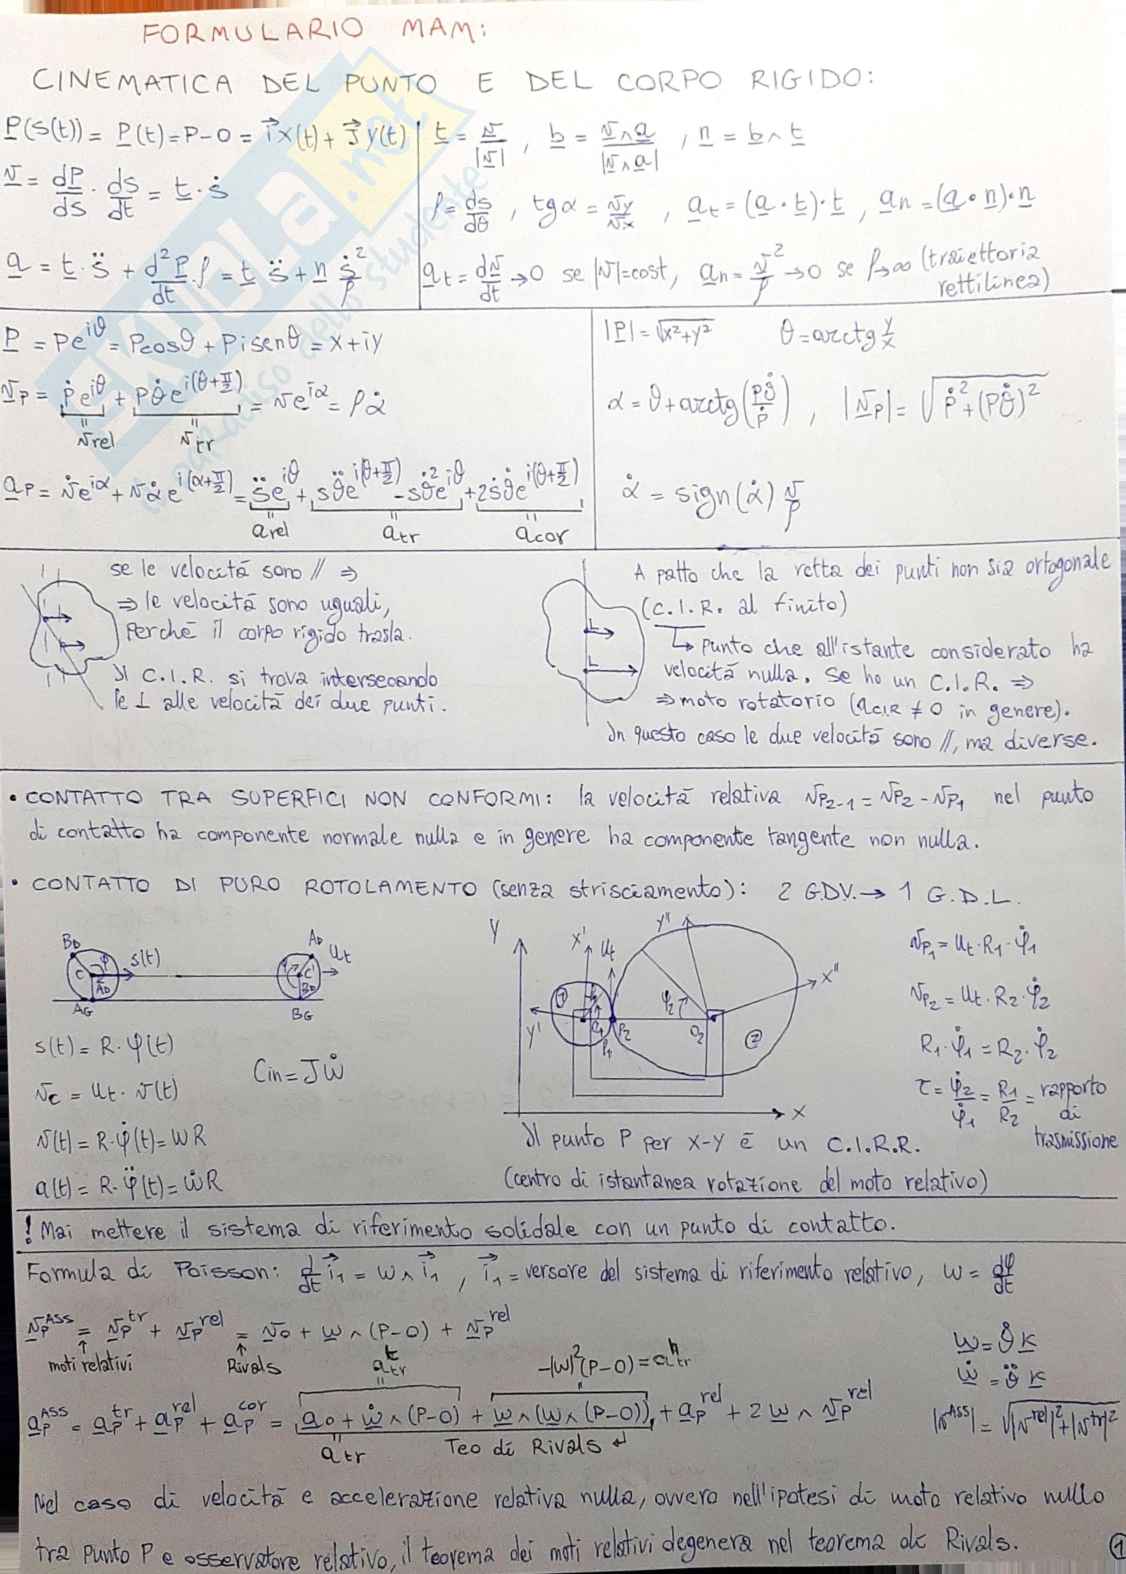 FORMULARIO MAM:
CINEMATICA DEL PUNTO E DEL CORPO RIGIDO:
P(s(t)) = P(t) = P-O = i x(t) + j y(t)
v = dP/ds · ds/dt = t · ṡ
a = t · s̈ + d²P/dt · ρ = t s̈ + n ṡ²/ρ
t = v/|v| , b = v∧a/|v∧a| , n = b∧t
ρ = ds/dθ , tgα = vy/vx , at = (a · t) · t , an = (a · n) · n
at = dv/dt → 0 se |v| = cost, an = v²/ρ → 0 se ρ→∞ (traiettoria
rettilinea)
P = Pe^iϑ = Pcosϑ + Pisenϑ = x+iy
vP = Ṗe^iϑ + Pϑ̇e^i(ϑ+π/2) = ve^iα = ρα̇
vrel vtr
aP = v̇e^iα + vα̇e^i(α+π/2) = s̈e^iϑ + sϑ̈e^i(ϑ+π/2) - sϑ̇²e^iϑ + 2ṡϑ̇e^i(ϑ+π/2)
arel atr acor
|P| = √x²+y² θ = arctg y/x
α = ϑ + arctg(Pϑ̇/Ṗ) , |vP| = √Ṗ²+(Pϑ̇)²
α̇ = sign(α̇) v/ρ
se le velocità sono // ⇒
⇒ le velocità sono uguali,
Perché il corpo rigido trasla.
Il C.I.R. si trova intersecando
le ⊥ alle velocità dei due punti.
A patto che la retta dei punti non sia ortogonale
(C.I.R. al finito)
↳ Punto che all'istante considerato ha
velocità nulla. Se ho un C.I.R. ⇒
⇒ moto rotatorio (aCIR ≠ 0 in genere).
In questo caso le due velocità sono //, ma diverse.
• CONTATTO TRA SUPERFICI NON CONFORMI: la velocità relativa vP2-1 = vP2 - vP1 nel punto
di contatto ha componente normale nulla e in genere ha componente tangente non nulla.
• CONTATTO DI PURO ROTOLAMENTO (senza strisciamento): 2 G.D.V. → 1 G.D.L.
BD φ s(t) C AD AG
AD ut C' BD BG
s(t) = R · φ(t)
vc = ut · v(t)
v(t) = R · φ̇(t) = ωR
a(t) = R · φ̈(t) = ω̇R
Cin = Jω̇
Y X' ut Y'' X''
① Y' O1 P1 P2 φ2 O2 ②
X
Il punto P per X-Y è un C.I.R.R.
(centro di istantanea rotazione del moto relativo)
vP1 = ut · R1 · φ̇1
vP2 = ut · R2 · φ̇2
R1 · φ̇1 = R2 · φ̇2
τ = φ̇2/φ̇1 = R1/R2 = rapporto
di
trasmissione
! Mai mettere il sistema di riferimento solidale con un punto di contatto.
Formula di Poisson: d/dt i1 = ω∧i1 , i1 = versore del sistema di riferimento relativo, ω = dφ/dt
vP^ASS = vP^tr + vP^rel = vo + ω∧(P-O) + vP^rel
moti relativi Rivals a^t tr -|ω|²(P-O) = a^n tr
aP^ASS = aP^tr + aP^rel + aP^cor = ao + ω̇∧(P-O) + ω∧(ω∧(P-O)) + aP^rel + 2ω∧vP^rel
atr Teo di Rivals
ω = ϑ̇ k
ω̇ = ϑ̈ k
|v^ASS| = √|v^rel|²+|v^tr|²
Nel caso di velocità e accelerazione relativa nulla, ovvero nell'ipotesi di moto relativo nullo
tra punto P e osservatore relativo, il teorema dei moti relativi degenera nel teorema di Rivals.
1
SKUOLA.net